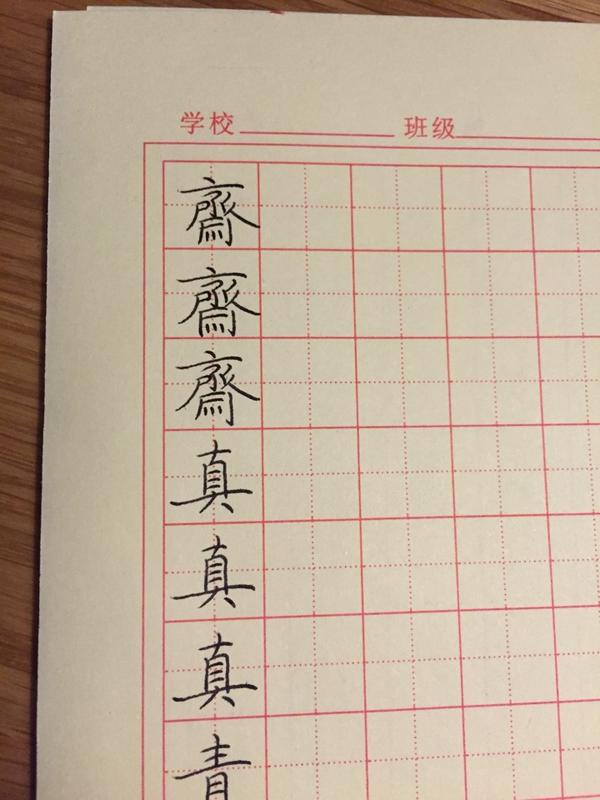 学校 班级
齋
齋
齋
真
真
真
青